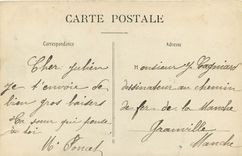 CARTE POSTALE
Correspondance
Adresse
Cher Julien
je t'envoie de
bien gros baisers
Ta sœur qui pense
à toi
M. Ponat
Monsieur J.
dessinateur au chemin
de fer de la Manche
Granville
Manche